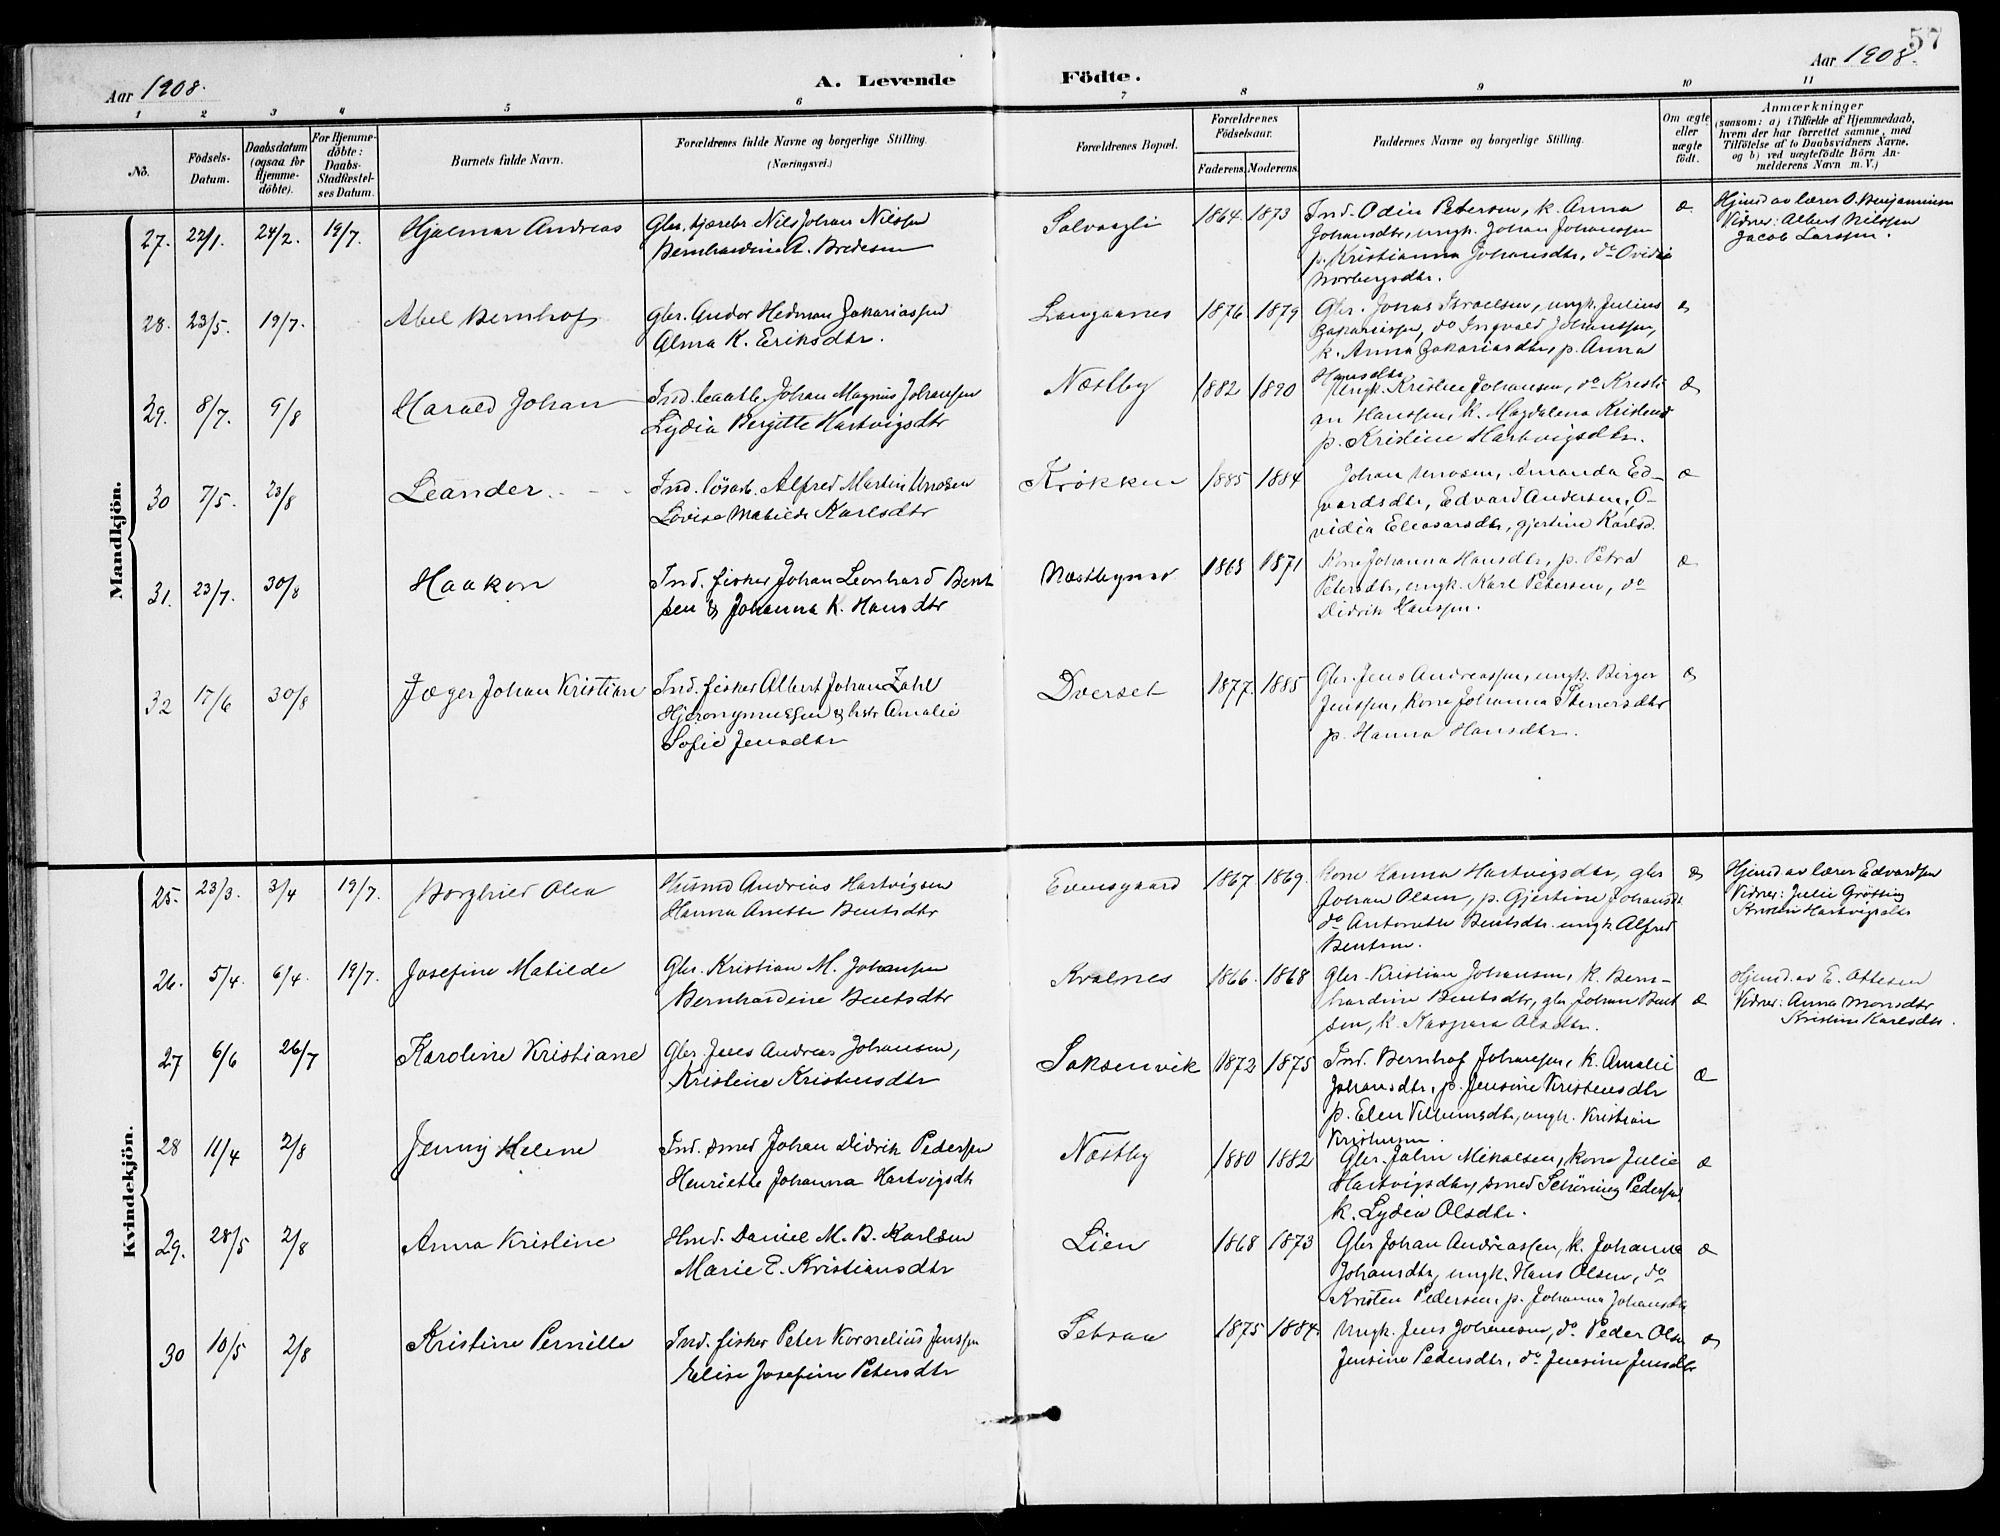 57
Aar 1908.
A. Levende Födte.
Aar 1908.
1 2 3 4 5 6 7 8 9 10 11
No.
Födsels-Datum.
Daabsdatum (ogsaa for Hjemme-döbte).
For Hjemme-döbte: Daabs-Stadfæstel-ses Datum.
Barnets fulde Navn.
Forældrenes fulde Navne og borgerlige Stilling.
(Næringsvei.)
Forældrenes Bopæl.
Forældrenes Födselsaar.
Faderens. Moderens.
Faddernes Navne og borgerlige Stilling.
Om ægte eller uægte födt.
Anmærkninger
(saasom: a) i Tilfælde af Hjemmedaab,
hvem der har forrettet samme, med
Tilföielse af to Daabsvidners Navne.
og b) ved uægtefödte Börn An-
melderens Navn m. V.)
Mandkjön.
27. 22/1. 24/2. 19/7. Hjalmar Andreas
Gbr. kjærebr Nils Johan Nilssen
Bernhardine A. Bredesen
Solvaagli 1864. 1873
Ind. Odin Petersen, k. Anna
Johansdtr, ungk. Johan Johanssen
p. Kristianna Johansdtr, do Ovidia
Norbergsdtr.
æ
Hjmd av lærer O. Benjaminsen
Vidner: Albert Nilssen
Jacob Larssen.
28. 23/5. 19/7. Abel Bernhof
Gbr. Andor Hedman Zakariassen
Alma K. Eriksdtr.
Langaanes 1876 1879
Gbr. Jonas Israelsen, ungk. Julius
Zakariassen, do Ingvald Johanssen,
k. Anna Zakariasdtr, p. Anna
Hansdtr
æ
29. 8/7. 9/8 Harald Johan
Ind. Johan Magnus Johanssen
Lydia Bergitte Hartvigsdtr
Næstby 1882 1890
Ungk. Kristen Johansen, do Kristi
an Hanssen, k. Magdalena Kristensd
p. Kristine Hartvigsdtr.
æ
30 7/5. 23/8 Leander
Ind. lösarb. Alfred Martin Unosen
Lovise Matilde Karlsdtr
Krökken 1885 1884
Johan Unosen, Amanda Ed-
vardsdtr, Edvard Andersen, O-
vidia Eleasarsdtr, Gjertine Karlsd.
æ
31. 23/7. 30/8 Haakon
Ind. fisker Johan Leonhard Bent
sen & Johanna K. Hansdtr
1868 1871
Kone Johanna Hansdtr, p. Petra
Petersdtr, ungk. Karl Petersen, do
Didrik Hanssen.
æ
32 17/6 30/8 Jæger Johan Kristian
Ind. fisker Albert Johan Zahl
Hjeronymussen & hstr Amalie
Sofie Jensdtr
Dverset 1877. 1885
Gbr. Jens Andreassen, ungk. Birger
Jenssen, Kone Johanna Steenersdtr
p. Hanna Hansdtr.
æ
Kvindekjön.
25. 23/3. 3/4 19/7. Borghild Olea
Husmd Andreas Hartvigsen
Hanna Anette Bentsdtr
Evensgaard 1867 1869.
Kone Hanna Hartvigsdtr, gbr
Johan Olsen, p. Gjertine Johansdt
do Antonette Bentsdtr. ungk. Alfred
Bentsen.
æ
Hjmd av lærer Edvardsen
Vidner: Julie Grötting
Kristine Hartvigsdtr
26. 5/4. 6/4. 19/7. Josefine Matilde
Gbr. Kristian M. Johansen
Bernhardine Bentsdtr
Kvalnes 1866. 1868
Gbr. Kristian Johansen, k. Bern-
hardine Bentsdtr, gbr Johan Bent
sen, k. Kaspara Olsdtr.
æ
Hjmd av E. Ottesen
Vidner: Anna Monsdtr
Kristine Karlsdtr.
27 6/6 26/7 Karoline Kristiane
Gbr. Jens Andreas Johansen,
Kristine Kristensdtr
Saksenvik 1872 1875
Ind. Bernhof Johanssen, k. Amalie
Johansdtr, p. Jensine Kristensdtr
p. Elen Villumsdtr, ungk. Kristian
Kristensen.
æ
28 11/4 2/8 Jenny Helene
Ind. smed Johan Didrik Pederssen
Henriette Johanna Hartvigsdtr
Næstby 1880 1882
Gbr. John Mikalsen, kone Julie
Hartvigsdtr, smed Schöning Pederssen
k. Lydia Olsdtr.
æ
29. 28/5 2/8 Anna Kristine
Hmd. Daniel M. B. Karlsen
Marie E. Kristiansdtr
Lien 1868 1873
Gbr Johan Andreassen, k. Johanna
Johansdtr, ungk. Hans Olsen, do
Kristen Pedersen, p. Johanna Johansdtr
æ
30 10/5 2/8 Kristine Pernille
Ind. fisker Peter Kornelius Jenssen
Elise Josefine Petersdtr
Setsaa 1875 1884.
Ungk. Jens Johansen, do. Peder Olsen
Jensine Pedersdtr, do Jensine Jensdtr
æ